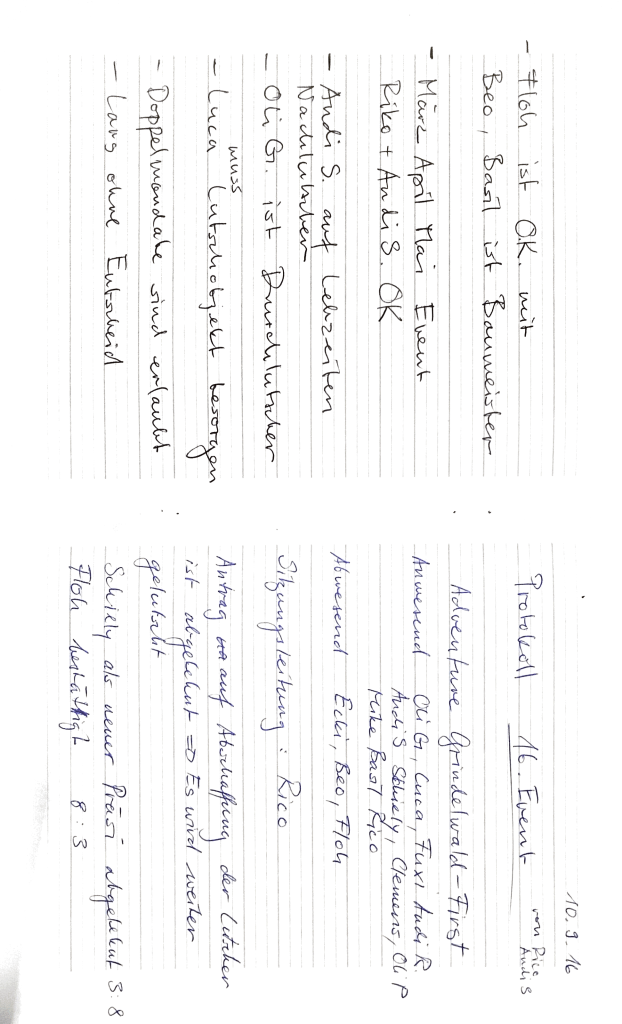 10.9.16
Protokoll 16. Event von Rico
Andi S
Adventure Grindelwald-First
Anwesend Oli G, Luca, Fuxi Andi R.
Andi S Schiely, Clemens, Oli P
Mike Basil Rico
Abwesend Ecki, Beo, Floh
Sitzungsleitung: Rico
Antrag auf Abschaffung der Lutscher
ist abgelehnt => Es wird weiter
gelutscht
Schiely als neuer Präsi abgelehnt 3:8
Floh bestättigt 8:3
- Floh ist O.K. mit
Beo, Basil ist Baumeister
- März April Mai Event
Riko + Andi S. OK
- Andi S. auf Lebzeiten
Nachlutscher
- Oli G. ist Durchlutscher
muss
- Luca Lutschobjekt besorgen
- Doppelmandate sind erlaubt
- Lang ohne Entscheid